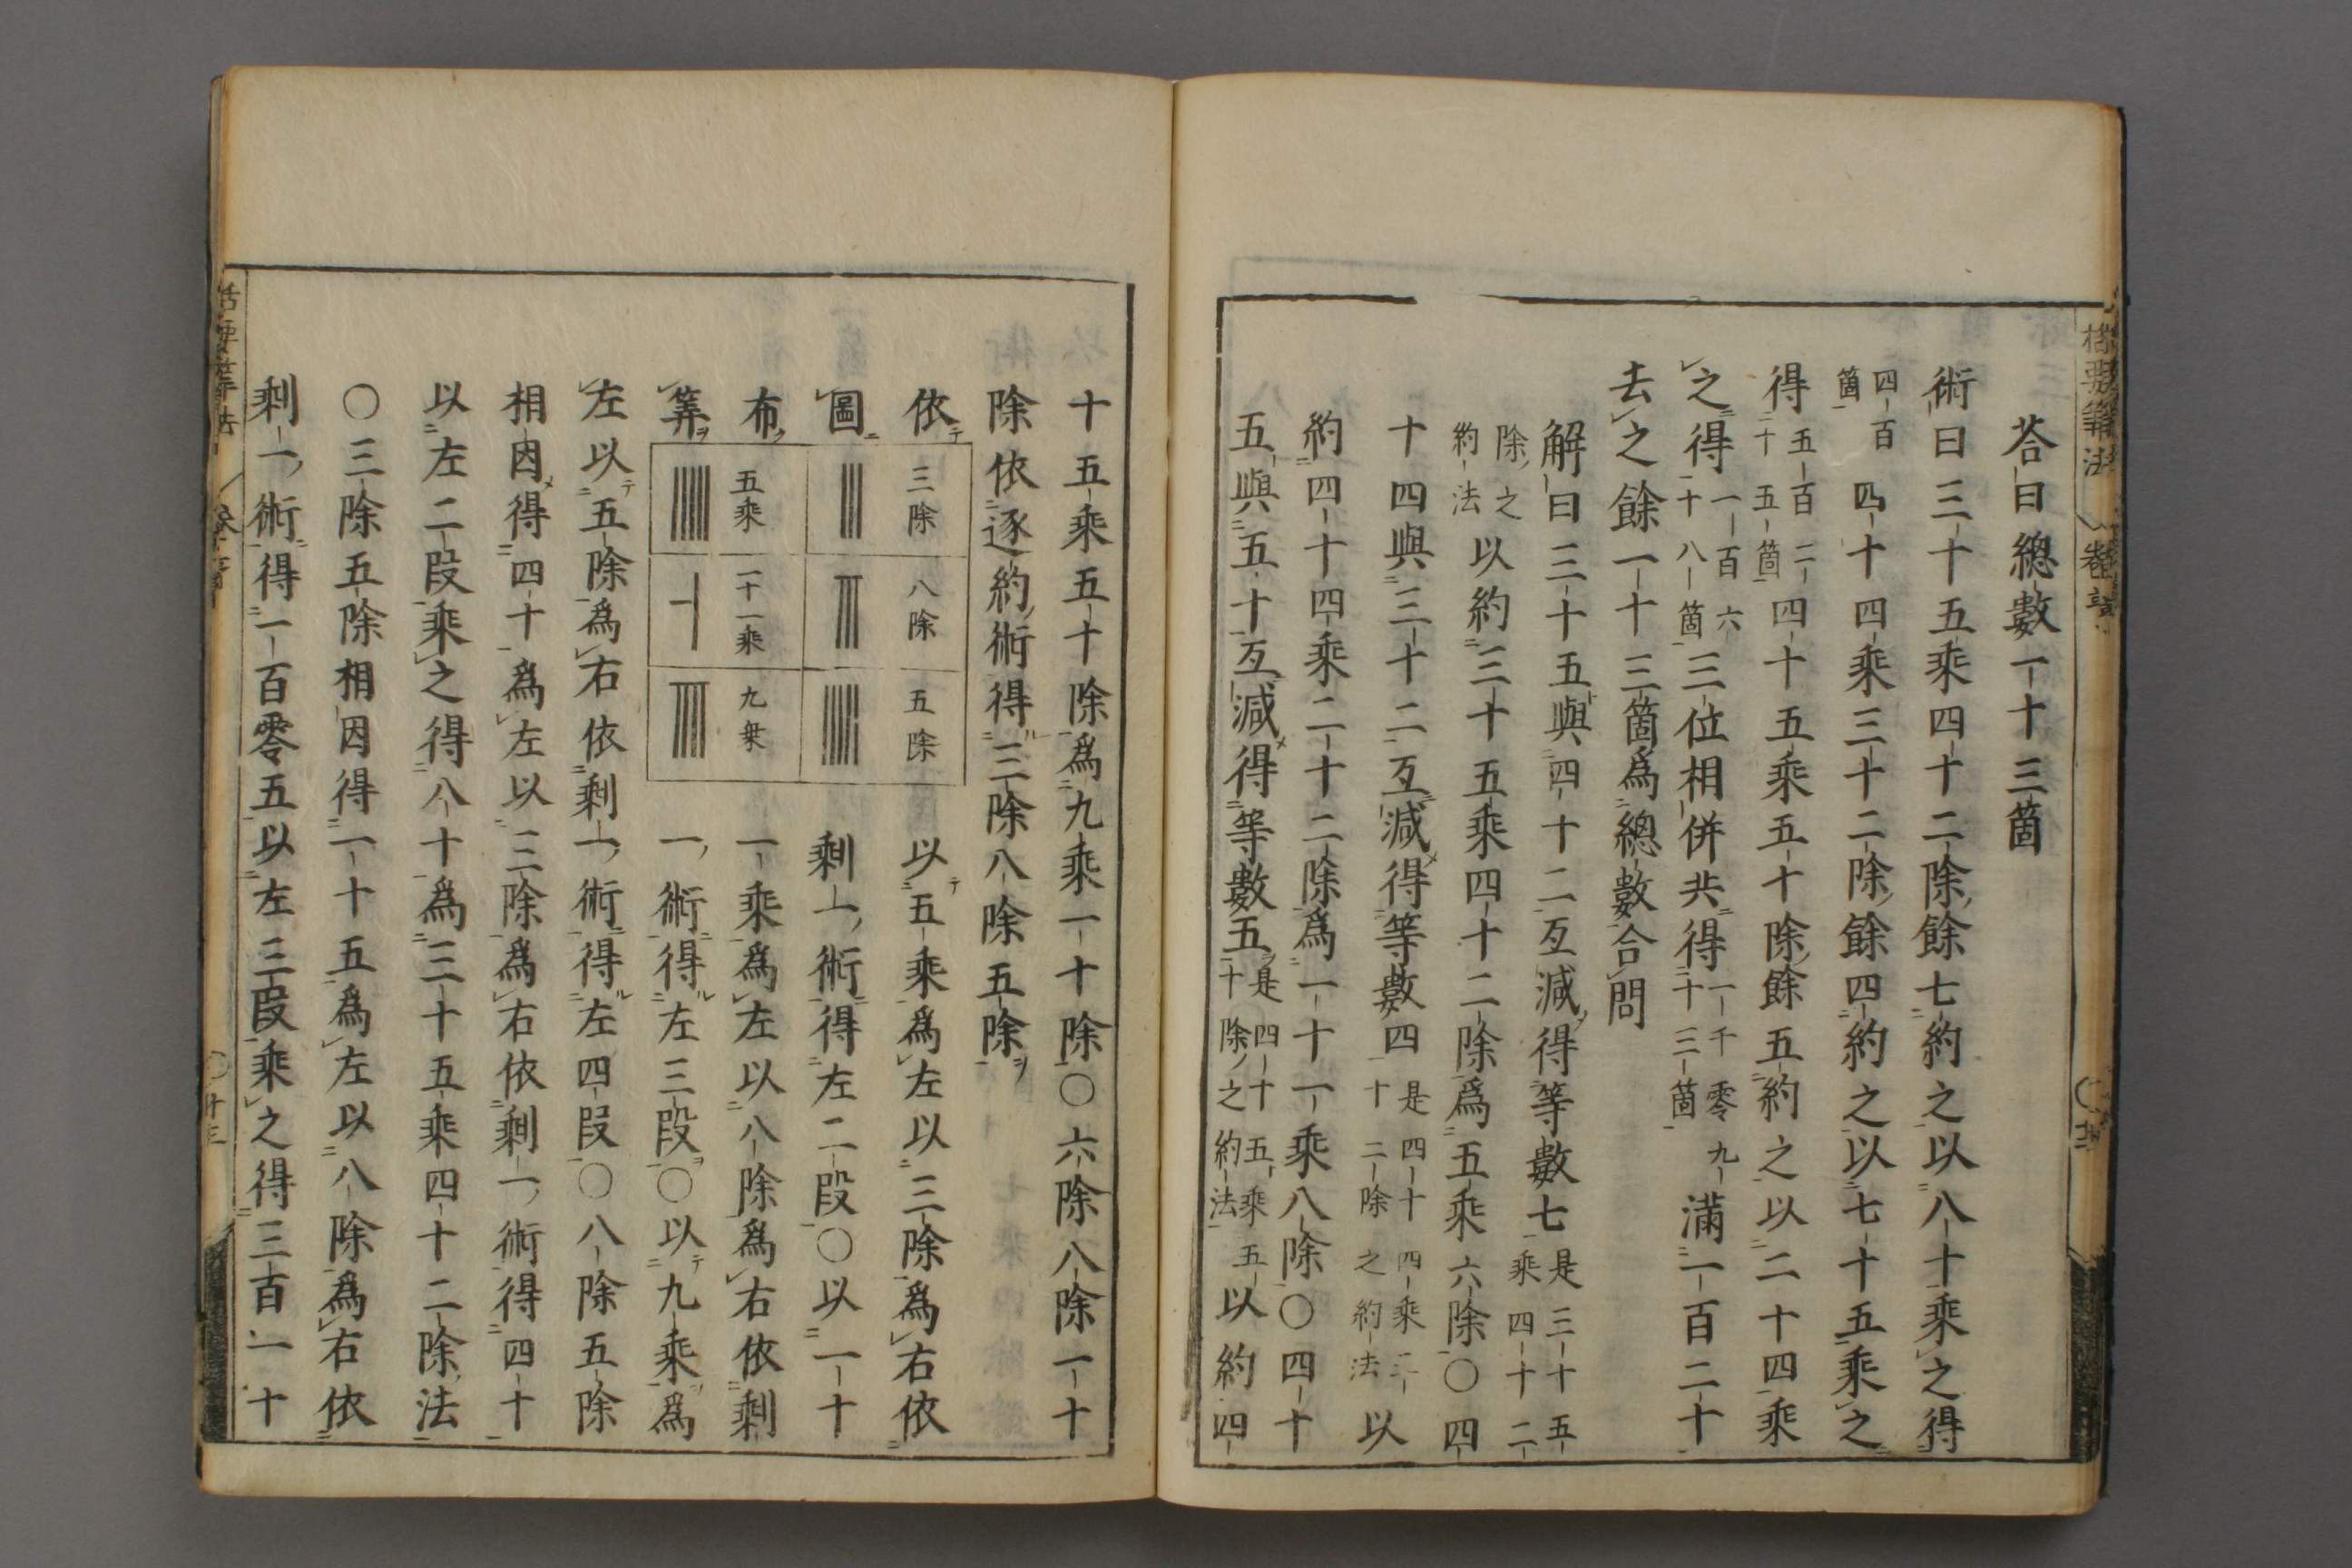 荅曰總數一十三箇
術曰三十五乘四十二除餘七約之以八十乘之得
四百
箇
四十四乘三十二除餘四約之以七十五乘之
得
五百二
十五箇
四十五乘五十除餘五約之以二十四乘
之得
一百六
十八箇
三位相併共得
一千零九
十三箇
滿一百二十
去之餘一十三箇爲總數合問
解曰三十五與四十二互減得等數七
是三十五
乘四十二
除之
約法
以約三十五乘四十二除爲五乘六除〇四
十四與三十二互減得等數四
是四十四乘三
十二除之約法
以
約四十四乘三十二除爲一十一乘八除〇四十
五與五十互減得等數五
是四十五乘五
十除之約法
以約四
十五乘五十除爲九乘一十除〇六除八除一十
除依逐約術得三除八除五除
依
圖
布
筭
三除
八除
五除
五乘
一十一乘
九乘
以五乘爲左以三除爲右依
剩一術得左二段〇以一十
一乘爲左以八除爲右依剩
一術得左三段〇以九乘爲
左以五除爲右依剩一術得左四段〇八除五除
相因得四十爲左以三除爲右依剩一術得四十
以左二段乘之得八十爲三十五乘四十二除法
〇三除五除相因得一十五爲左以八除爲右依
剩一術得一百零五以左三段乘之得三百一十
括要筭法